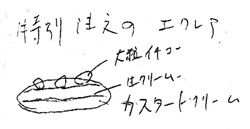 特別注文のエクレア
大粒イチゴ
生クリーム
カスタードクリーム